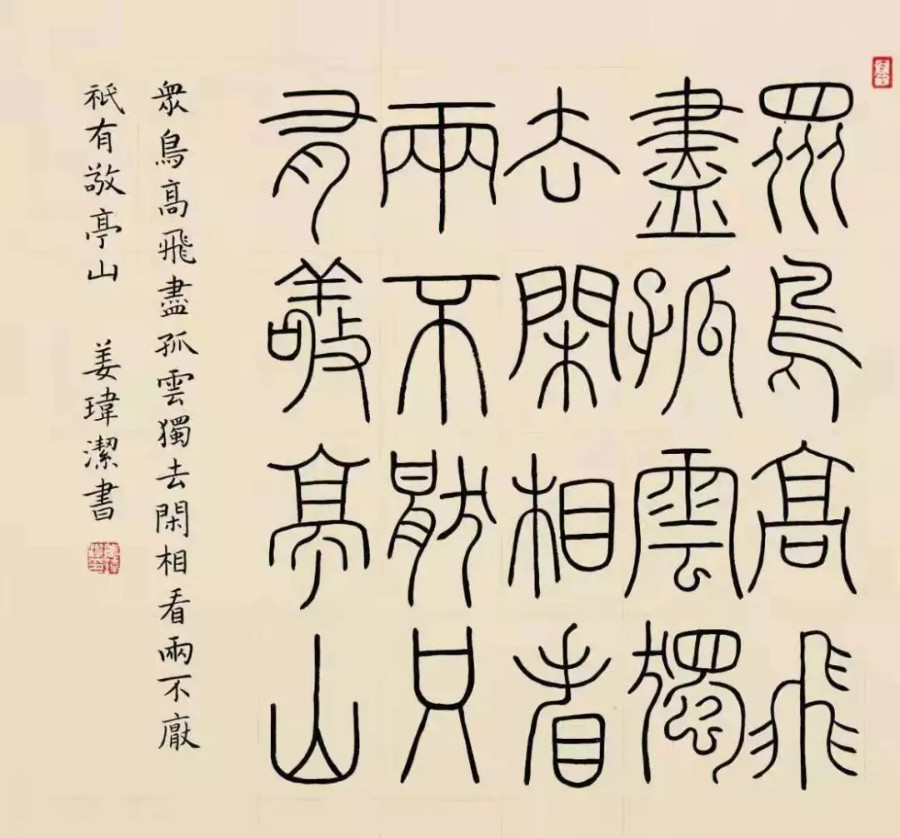 眾鳥高飛
盡孤雲獨
去閑相看
兩不猒只
有敬亭山
衆鳥髙飛盡孤雲獨去閑相看兩不厭
祇有敬亭山 姜瑋潔書